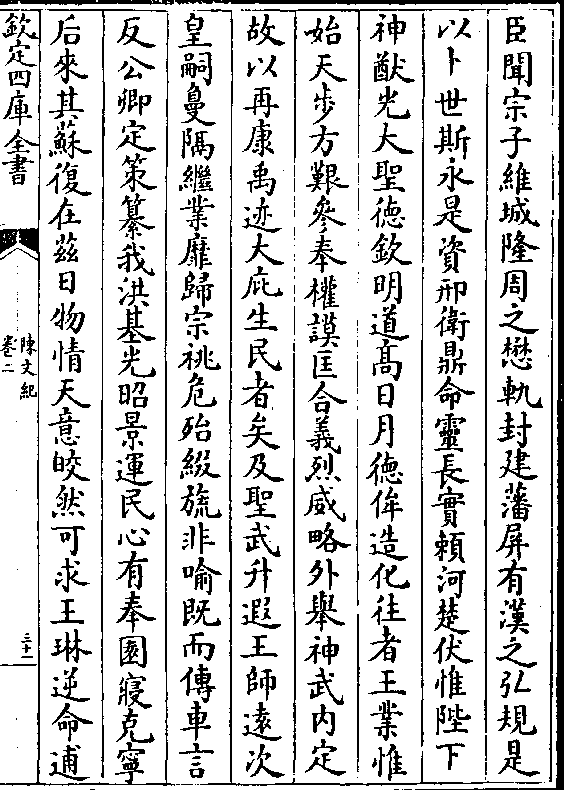 臣聞宗子維城隆周之懋軌封建藩屏有漢之弘規是
以卜世斯永是資邢衛鼎命靈長實賴河楚伏惟陛下
神猷光大聖德欽明道高日月德侔造化往者王業惟
始天步方艱參奉權謨匡合義烈威略外舉神武内定
故以再康禹迹大庇生民者矣及聖武升遐王師遠次
皇嗣敻隔繼業靡歸宗祧危殆綴旒非喻既而傳車言
反公卿定策纂我洪基光昭景運民心有奉園寢克寧
后來其蘇復在兹日物情天意皎然可求王琳逆命逋
欽定四庫全書
陳文紀
卷二
三十一